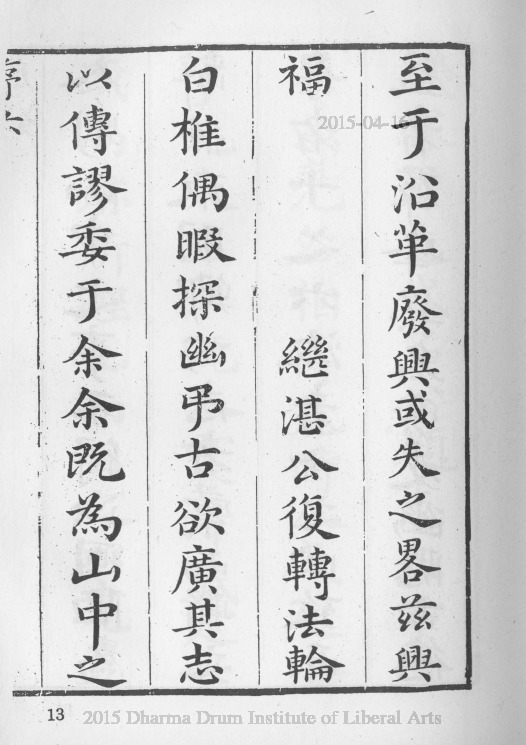 至于沿革廢興或失之畧茲興
福　繼湛公復轉法輪
白椎偶暇探幽弔古欲廣其志
以傳謬委于余余既為山中之
序六
2015-04-16
13
2015 Dharma Drum Institute of Liberal Arts